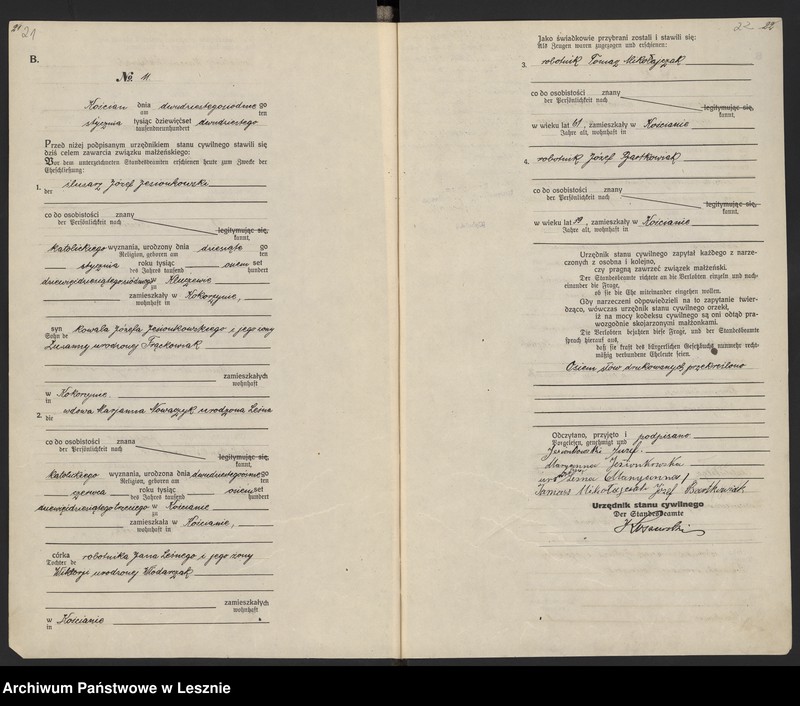 21
B.
No. 11
Kościan dnia dwudziestego go
am ten
stycznia tysiąc dziewięćset dwudziestego
tausendneunhundert
Przed niżej podpisanym urzędnikiem stanu cywilnego stawili się
dziś celem zawarcia związku małżeńskiego:
Vor dem unterzeichneten Standesbeamten erschienen heute zum Zwecke der
Eheschließung:
1. ślusarz Józef Jesionkowski
der
co do osobistości znany
der Persönlichkeit nach
legitymując się,
kannt,
katolickiego wyznania, urodzony dnia dziesiąte go
Religion, geboren am ten
stycznia roku tysiąc osiem set
des Jahres tausend hundert
w Kluczewie
zu
zamieszkały w Kokorzynie,
wohnhaft in
syn kowala Józefa Jesionkowskiego i jego żony
Sohn de
Zuzanny urodzonej Frąckowiak
zamieszkałych
wohnhaft
w Kokorzynie.
in
2. wdowa Marjanna Nowaczyk urodzona Leśna
die
co do osobistości znana
der Persönlichkeit nach
legitymując się,
kannt,
katolickiego wyznania, urodzona dnia go
Religion, geboren am ten
czerwca roku tysiąc osiem set
des Jahres tausend hundert
dziewięćdziesiątego trzeciego w Kościanie
zu
zamieszkała w Kościanie,
wohnhaft in
córka robotnika Jana Leśnego i jego żony
Tochter de
Wiktorji urodzonej Włodarczak
zamieszkałych
wohnhaft
w Kościanie
in
22 22
Jako świadkowie przybrani zostali i stawili się:
Als Zeugen waren zugezogen und erschienen:
3. robotnik Tomasz Mikołajczak
co do osobistości znany
der Persönlichkeit nach
legitymując się,
kannt.
w wieku lat 61, zamieszkały w Kościanie
Jahre alt, wohnhaft in
4. robotnik Józef Bartkowiak
co do osobistości znany
der Persönlichkeit nach
legitymując się,
kannt.
w wieku lat , zamieszkały w Kościanie
Jahre alt, wohnhaft in
Urzędnik stanu cywilnego zapytał każdego z narze-
czonych z osobna i kolejno,
czy pragną zawrzeć związek małżeński.
Der Standesbeamte richtete an die Verlobten einzeln und nach-
einander die Frage,
ob sie die Ehe miteinander eingehen wollen.
Gdy narzeczeni odpowiedzieli na to zapytanie twier-
dząco, wówczas urzędnik stanu cywilnego orzekł,
iż na mocy kodeksu cywilnego są oni odtąd pra-
wozgodnie skojarzonymi małżonkami.
Die Verlobten bejahten diese Frage, und der Standesbeamte
sprach hierauf aus,
daß sie kraft des bürgerlichen Gesetzbuchs nunmehr recht-
mäßig verbundene Eheleute seien.
Osiem słów drukowanych przekreślono
Odczytano, przyjęto i podpisano
Vorgelesen, genehmigt und
Jesionkowski Juzef.
Maryanna Jesionkowska
Leśna
Tomasz Mikołajczak Józef Bartkowiak
Urzędnik stanu cywilnego
Der Standesbeamte
Archiwum Państwowe w Lesznie